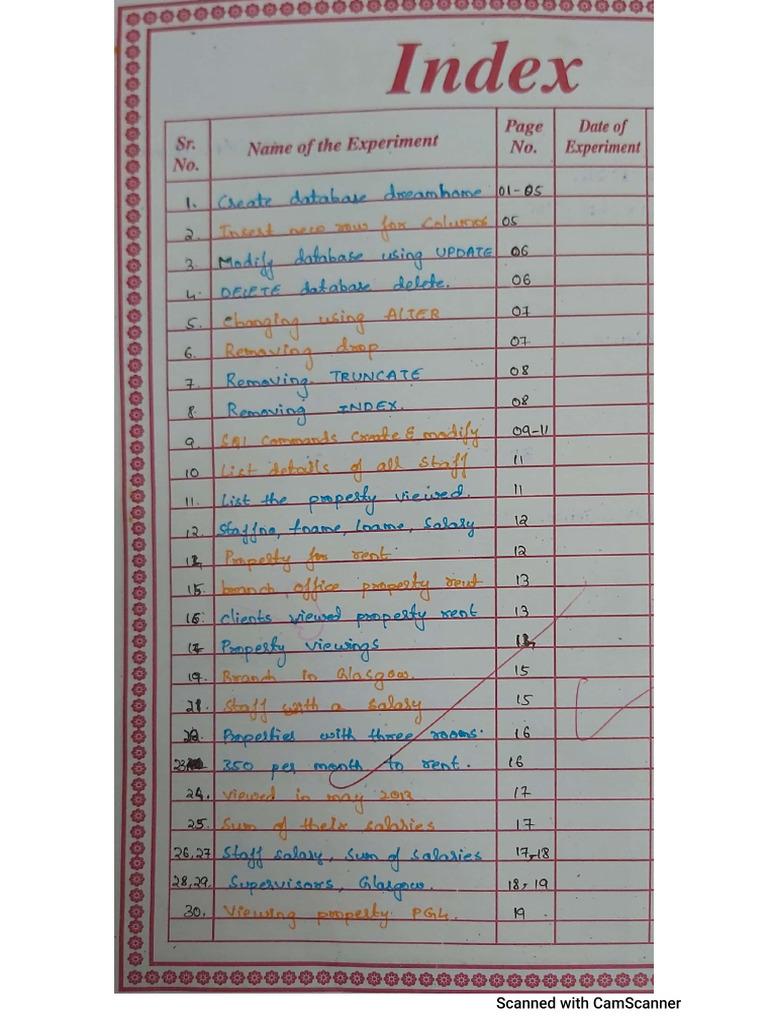 Index
Sr. No. Name of the Experiment Page No. Date of Experiment
1. Create database dreamhome 01-05
2. Insert new row for Columns 05
3. Modify database using UPDATE 06
4. DELETE database delete. 06
5. Changing using AlTER 07
6. Removing drop 07
7. Removing TRUNCATE 08
8. Removing INDEX. 08
9. SQl Commands Create & modify 09-11
10 List details of all Staff 11
11. List the property viewed. 11
12. Staffno, fname, lname, Salary 12
Property for rent 12
15. branch, office property rent 13
16. clients viewed property rent 13
17 Property viewings
19. Branch in Glasgow. 15
21. Staff with a salary 15
22. Properties with three rooms. 16
23 350 per month to rent. 16
24. Viewed in may 2013 17
25. Sum of theix salaries 17
26,27 Staff salary, Sum of salaries 17,18
28,29. Supervisors, Glasgow. 18, 19
30. Viewing property PG4. 19
Scanned with CamScanner